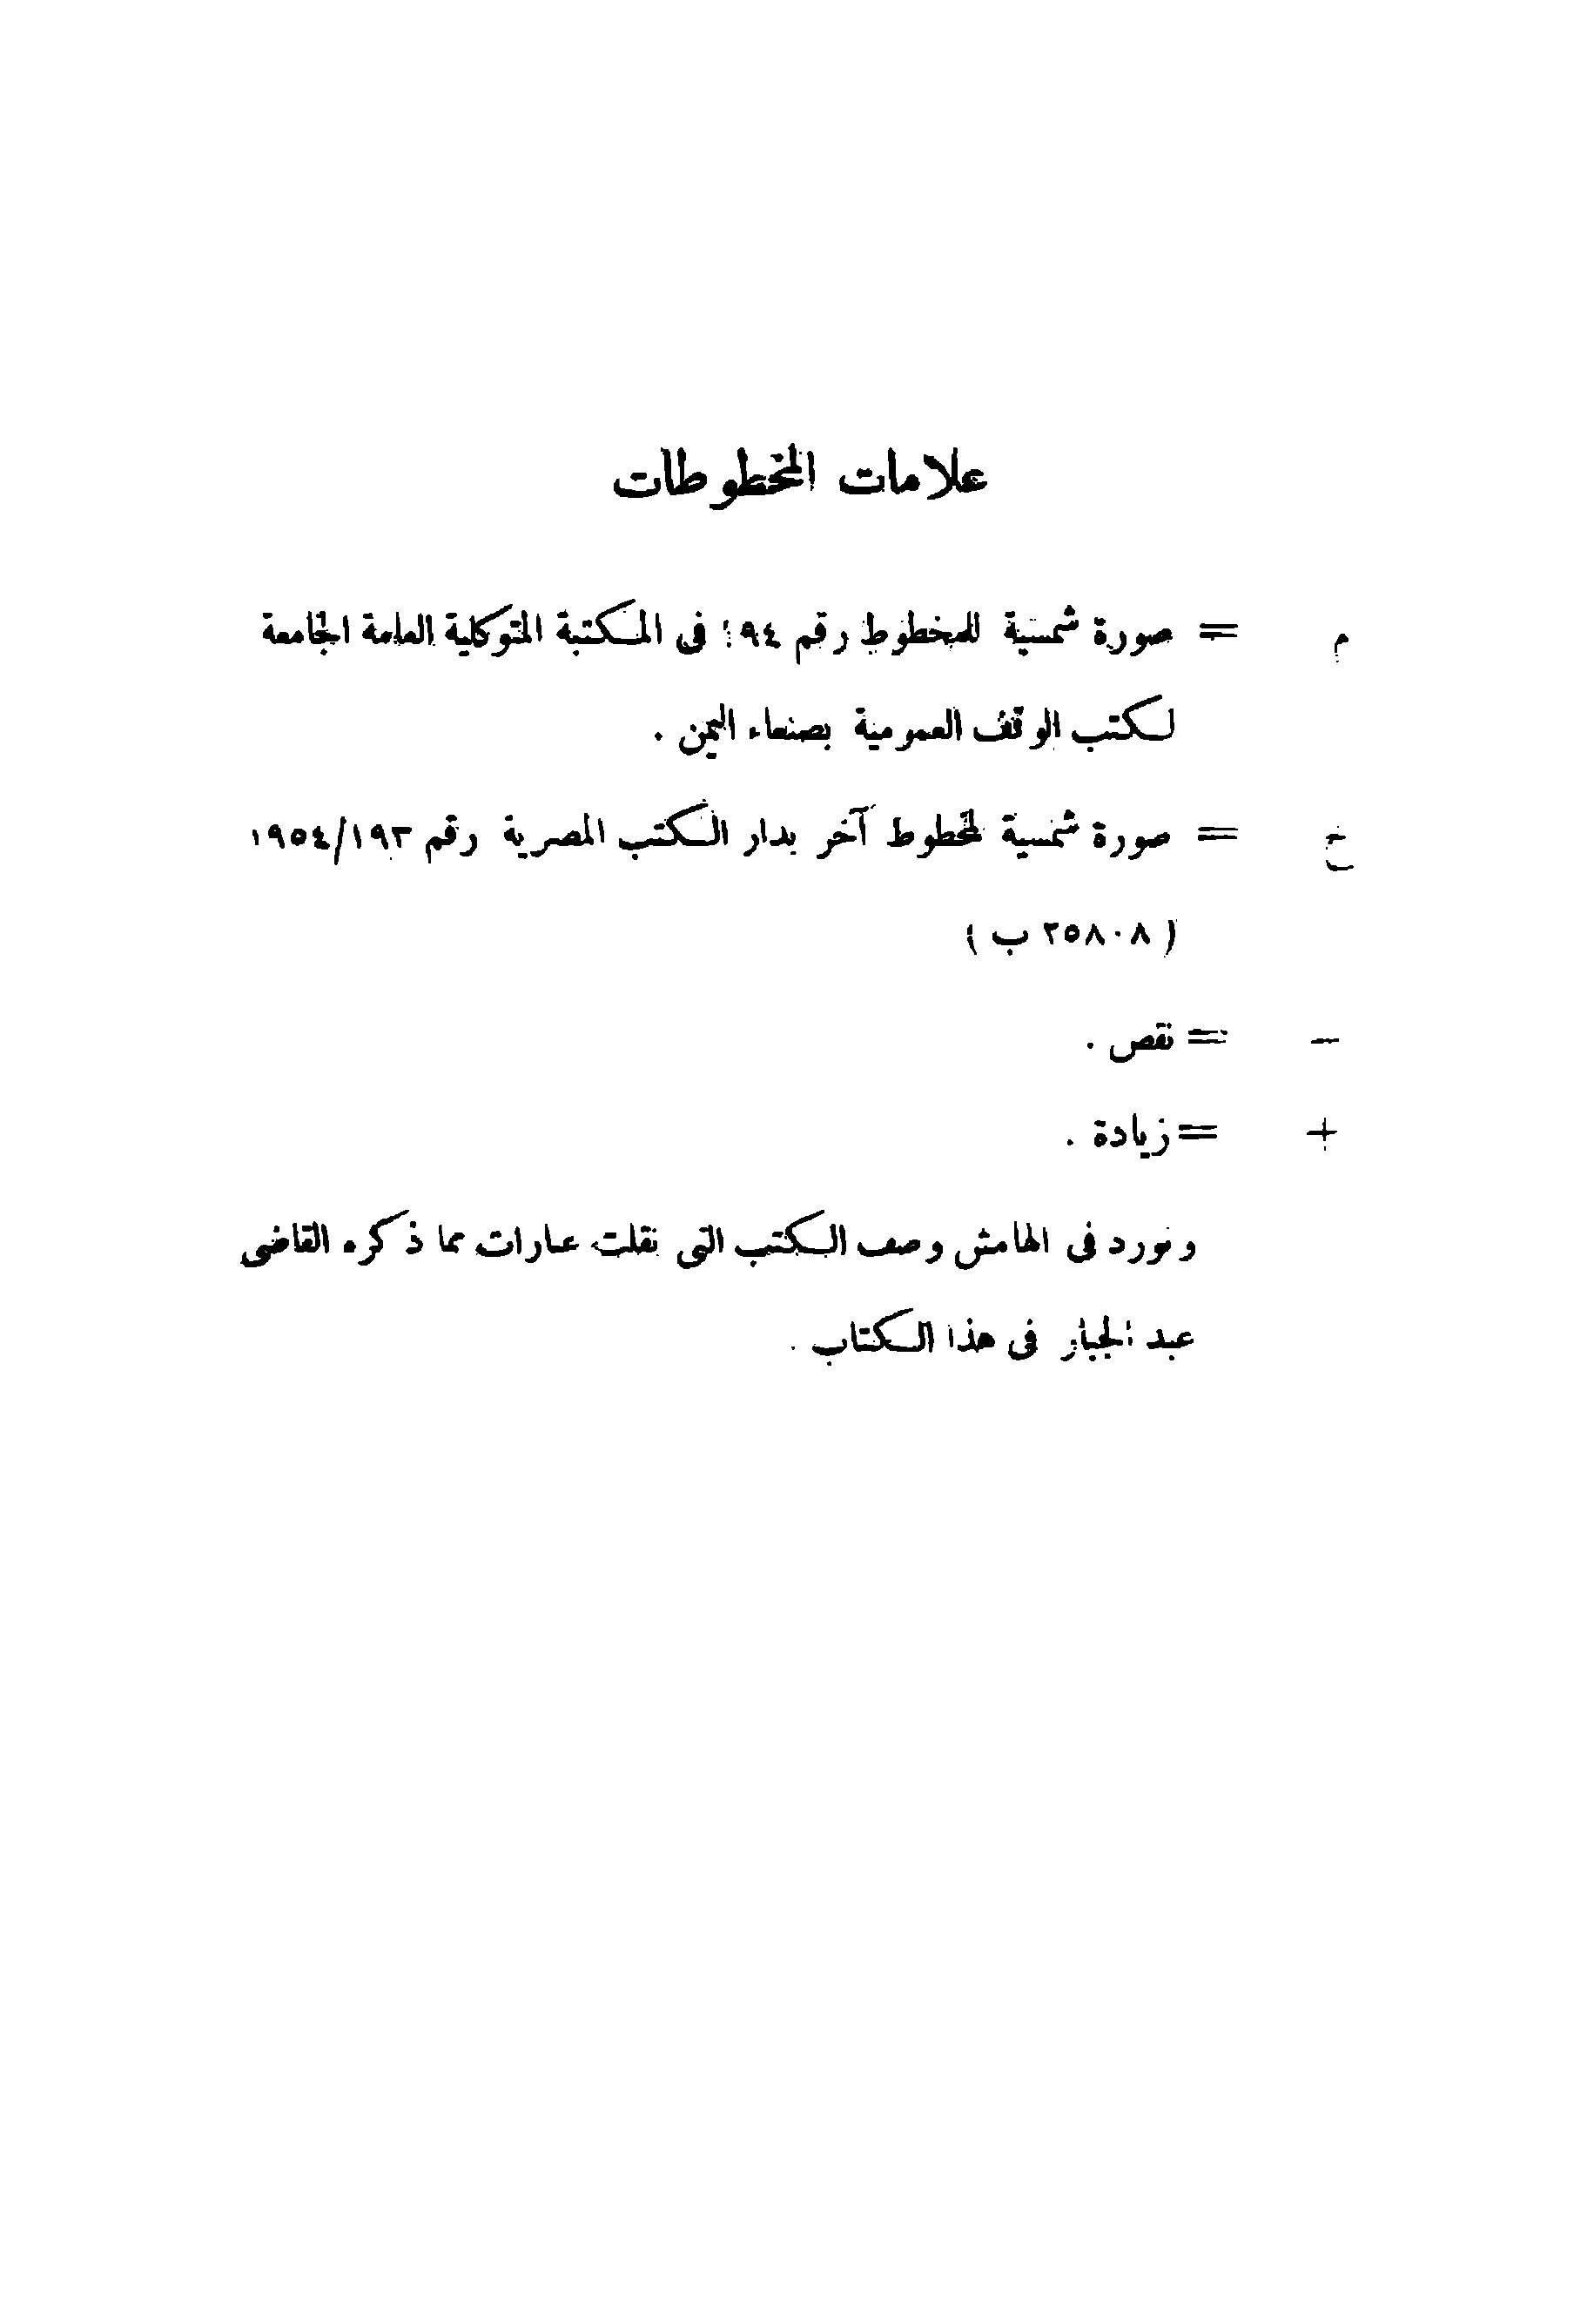 علامات المخطوطات
م = صورة شمسية للمخطوط رقم ١٩٤ فى المكتبة المتوكلية العامة الجامعة
لكتب الوقف العمومية بصنعاء اليمن .
خ = صورة شمسية لمخطوط آخر بدار الكتب المصرية رقم ١٩٥٤/١٩٣
( ٢٥٨٠٨ ب )
— = نقص .
+ = زيادة .
ونورد فى الهامش وصف الكتب التى نقلت عبارات مما ذكره القاضى
عبد الجبار فى هذا الكتاب .